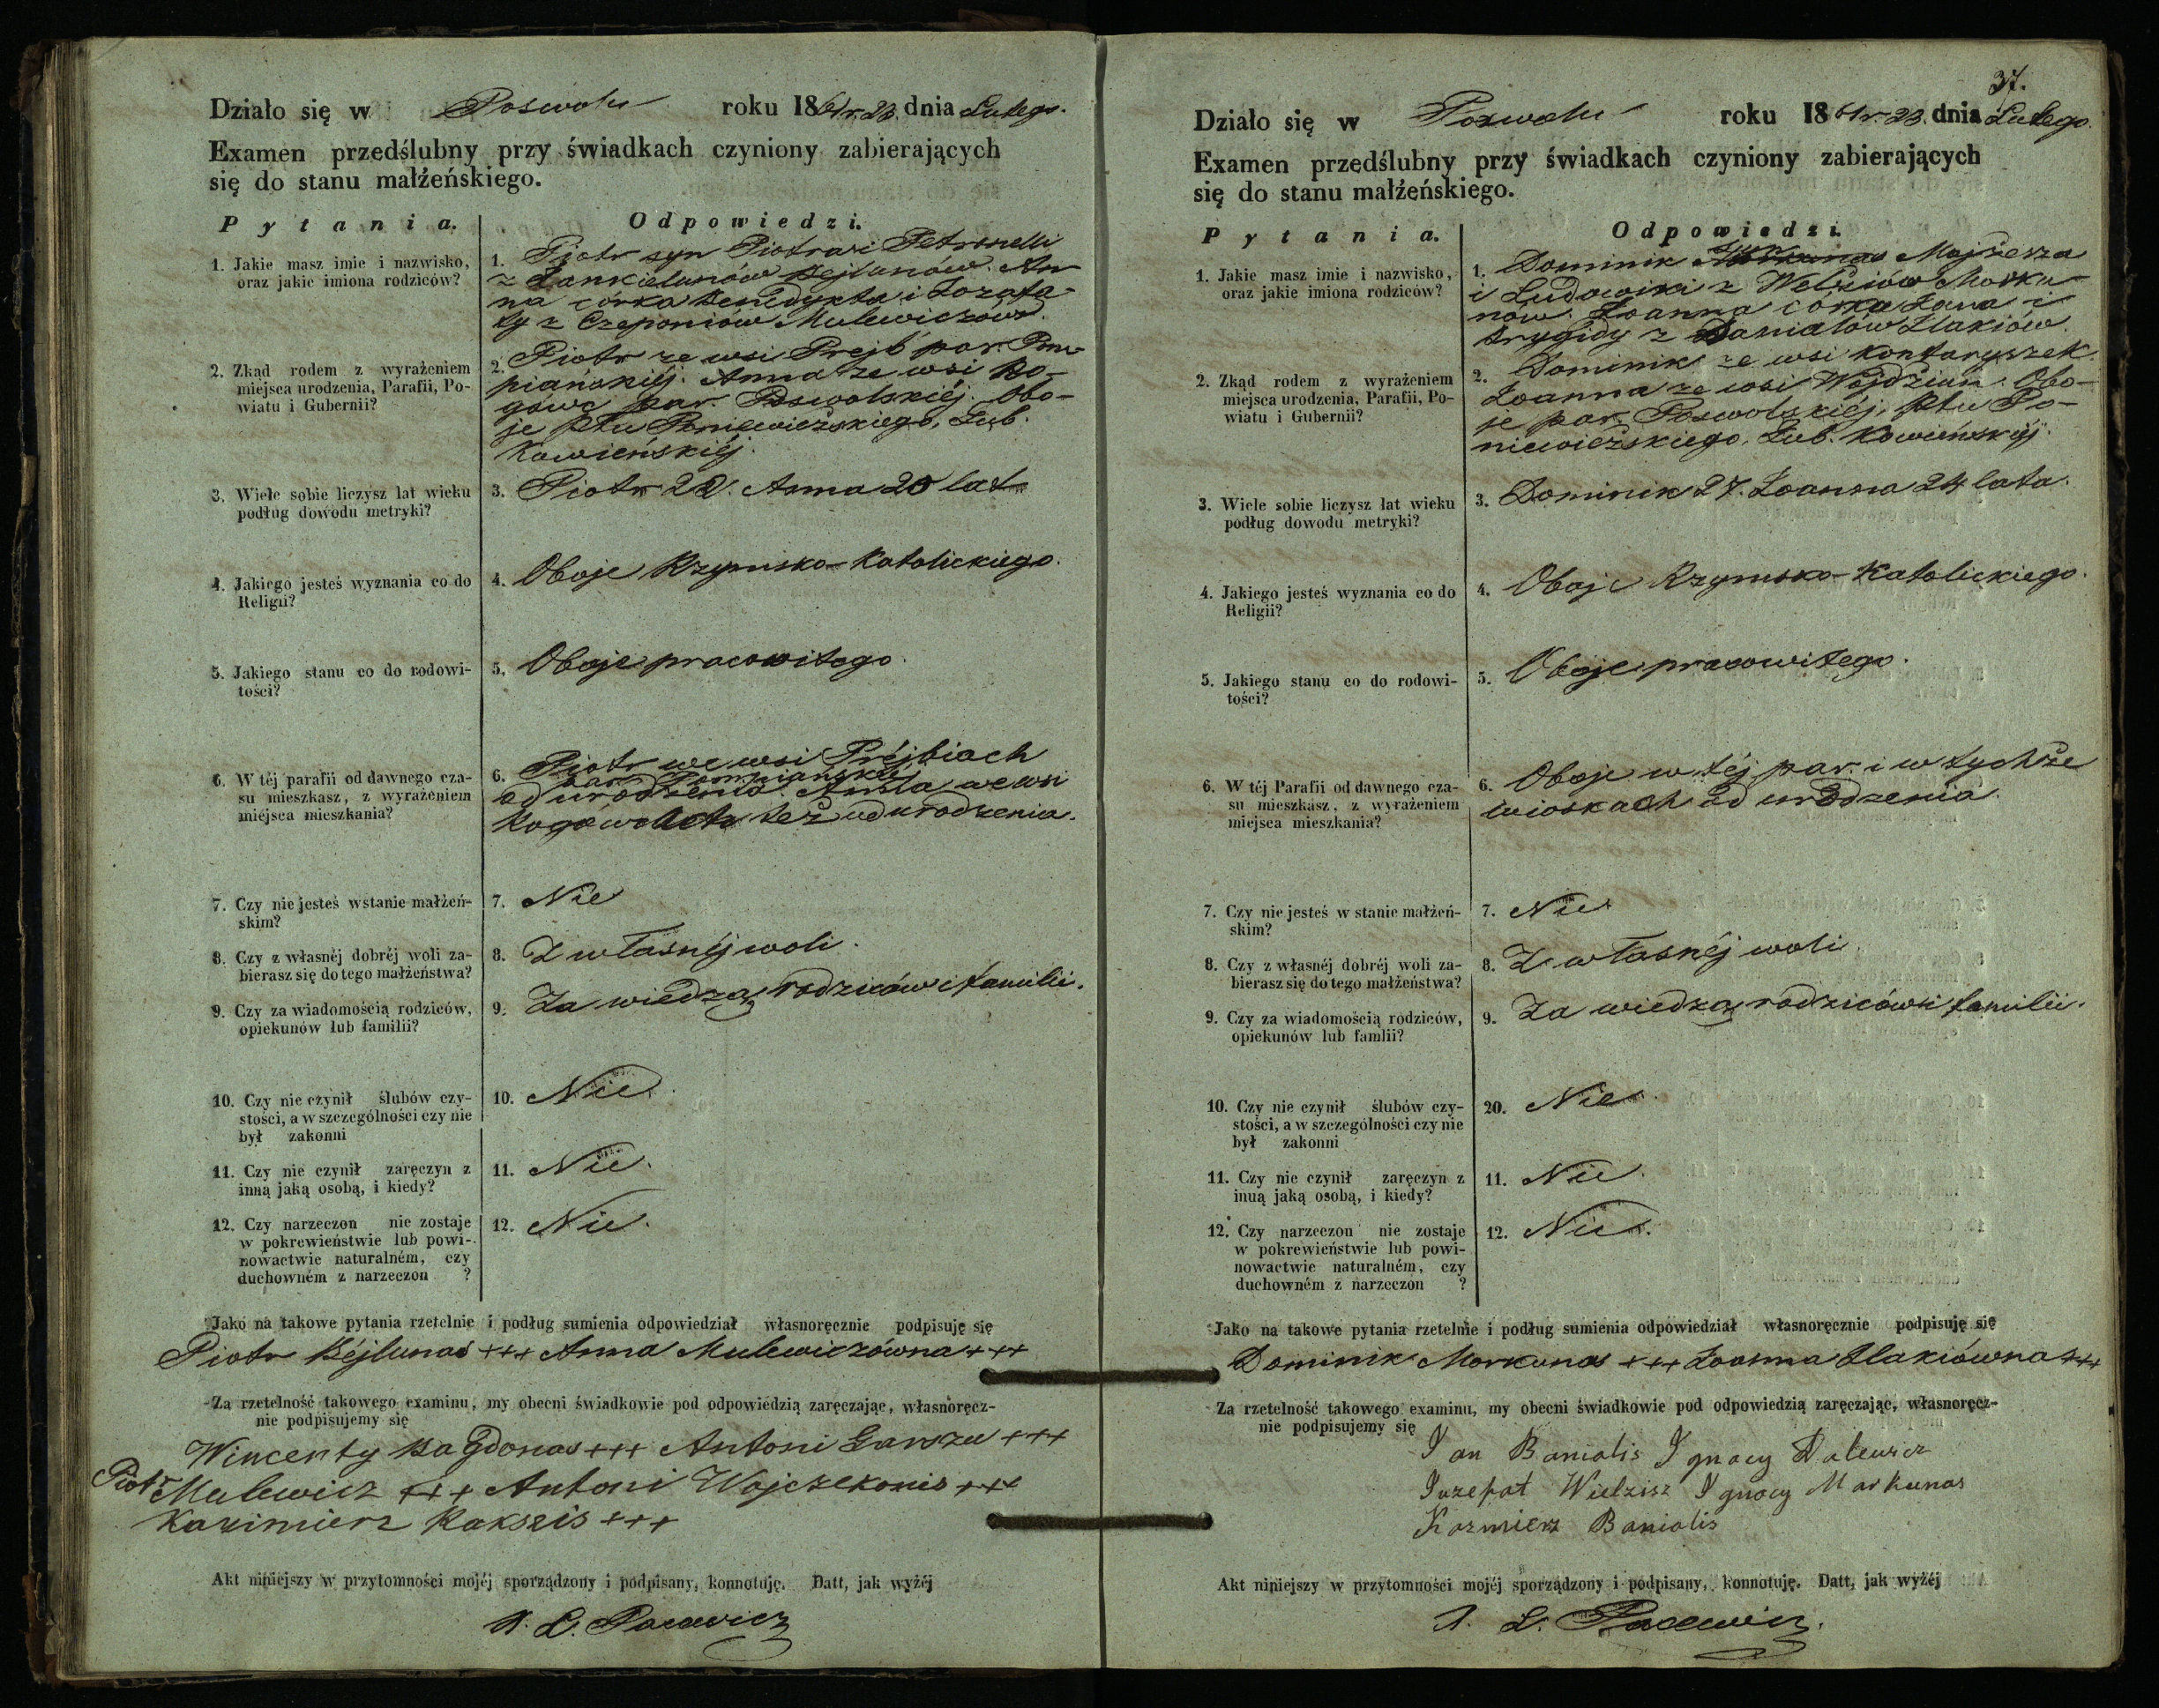 Działo się w Poswolu roku 1861 r. 23. dnia Lutego.
Examen przedślubny przy świadkach czyniony zabierających
się do stanu małżeńskiego.
Pytania. Odpowiedzi.
1. Jakie masz imie i nazwisko,
oraz jakie imiona rodziców?
1. Piotr syn Piotra i Petronelli
z Jankielunów Bejlunów. An-
na córka Benedykta i Jozafa-
ty z Czeponiów Mulewiczów.
2. Zkąd rodem z wyrażeniem
miejsca urodzenia, Parafii, Po-
wiatu i Gubernii?
2. Piotr ze wsi Prejb par. Pom-
piańskiéj. Anna ze wsi
par. Poswolskiéj. Obo-
je Ptu Poniewieżskiego, Gub.
Kowieńskiéj.
3. Wiele sobie liczysz lat wieku
podług dowodu metryki?
3. Piotr 22. Anna 20 lat
4. Jakiego jesteś wyznania co do
Religii?
4. Oboje Rzymsko-Katolickiego.
5. Jakiego stanu co do rodowi-
tości?
5. Oboje pracowitego.
6. W téj parafii od dawnego cza-
su mieszkasz, z wyrażeniem
miejsca mieszkania?
6. Piotr we wsi Préjbiach
par. Pompiańskiéj
od urodzenia. Anna we wsi
też od urodzenia.
7. Czy nie jesteś w stanie małżeń-
skim?
7. Nie
8. Czy z własnéj dobréj woli za-
bierasz się do tego małżeństwa?
8. Z własnéj woli.
9. Czy za wiadomością rodziców,
opiekunów lub familii?
9. Za wiedzą rodziców i familii.
10. Czy nie czynił ślubów czy-
stości, a w szczególności czy nie
był zakonni
10. Nie.
11. Czy nie czynił zaręczyn z
inną jaką osobą, i kiedy?
11. Nie.
12. Czy narzeczon nie zostaje
w pokrewieństwie lub powi-
nowactwie naturalném, czy
duchowném z narzeczon ?
12. Nie.
Jako na takowe pytania rzetelnie i podług sumienia odpowiedział własnoręcznie podpisuję się
Piotr Béjlunas +++ Anna Mulewiczówna +++
Za rzetelność takowego examinu, my obecni świadkowie pod odpowiedzią zaręczając, własnoręcz-
nie podpisujemy się
Wincenty Bagdonas +++ Antoni +++
Piotr Mulewicz +++ Antoni Wojczekonis +++
Kazimierz Rakszis +++
Akt niniejszy w przytomności mojéj sporządzony i podpisany, konnotuję. Datt, jak wyżéj
Pacewicz
37.
Działo się w Poswolu roku 1861 r. 23. dnia Lutego.
Examen przedślubny przy świadkach czyniony zabierających
się do stanu małżeńskiego.
Pytania. Odpowiedzi.
1. Jakie masz imie i nazwisko,
oraz jakie imiona rodziców?
1. Dominik syn Mojżesza
i Ludowiki z Morku-
nów. Joanna córka Jana i
Brygidy z Danialów Żlakiów.
2. Zkąd rodem z wyrażeniem
miejsca urodzenia, Parafii, Po-
wiatu i Gubernii?
2. Dominik ze wsi Kontaryszek.
Joanna ze wsi Wojdziun. Obo-
je par. Poswolskiéj, Ptu Po-
niewieżskiego, Gub. Kowieńskiéj.
3. Wiele sobie liczysz lat wieku
podług dowodu metryki?
3. Dominik 27. Joanna 24 lata.
4. Jakiego jesteś wyznania co do
Religii?
4. Oboje Rzymsko-Katolickiego.
5. Jakiego stanu co do rodowi-
tości?
5. Oboje pracowitego.
6. W téj Parafii od dawnego cza-
su mieszkasz, z wyrażeniem
miejsca mieszkania?
6. Oboje w téj par. i w tychże
wioskach od urodzenia.
7. Czy nie jesteś w stanie małżeń-
skim?
7. Nie.
8. Czy z własnéj dobréj woli za-
bierasz się do tego małżeństwa?
8. Z własnéj woli.
9. Czy za wiadomością rodziców,
opiekunów lub famlii?
9. Za wiedzą rodziców i familii.
10. Czy nie czynił ślubów czy-
stości, a w szczególności czy nie
był zakonni
20. Nie.
11. Czy nie czynił zaręczyn z
inuą jaką osobą, i kiedy?
11. Nie.
12. Czy narzeczon nie zostaje
w pokrewieństwie lub powi-
nowactwie naturalném, czy
duchowném z narzeczon ?
12. Nie.
Jako na takowe pytania rzetelnie i podług sumienia odpowiedział własnoręcznie podpisuję się
Dominik Morkunas +++ Joanna Żlakiówna +++
Za rzetelność takowego examinu, my obecni świadkowie pod odpowiedzią zaręczając, własnoręcz-
nie podpisujemy się
Jan Banialis Ignacy Dalewicz
Juzefat Wielzisz Ignacy Markunas
Kazmierz Banialis
Akt niniejszy w przytomności mojéj sporządzony i podpisany, konnotuję. Datt, jak wyżéj
Pacewicz.